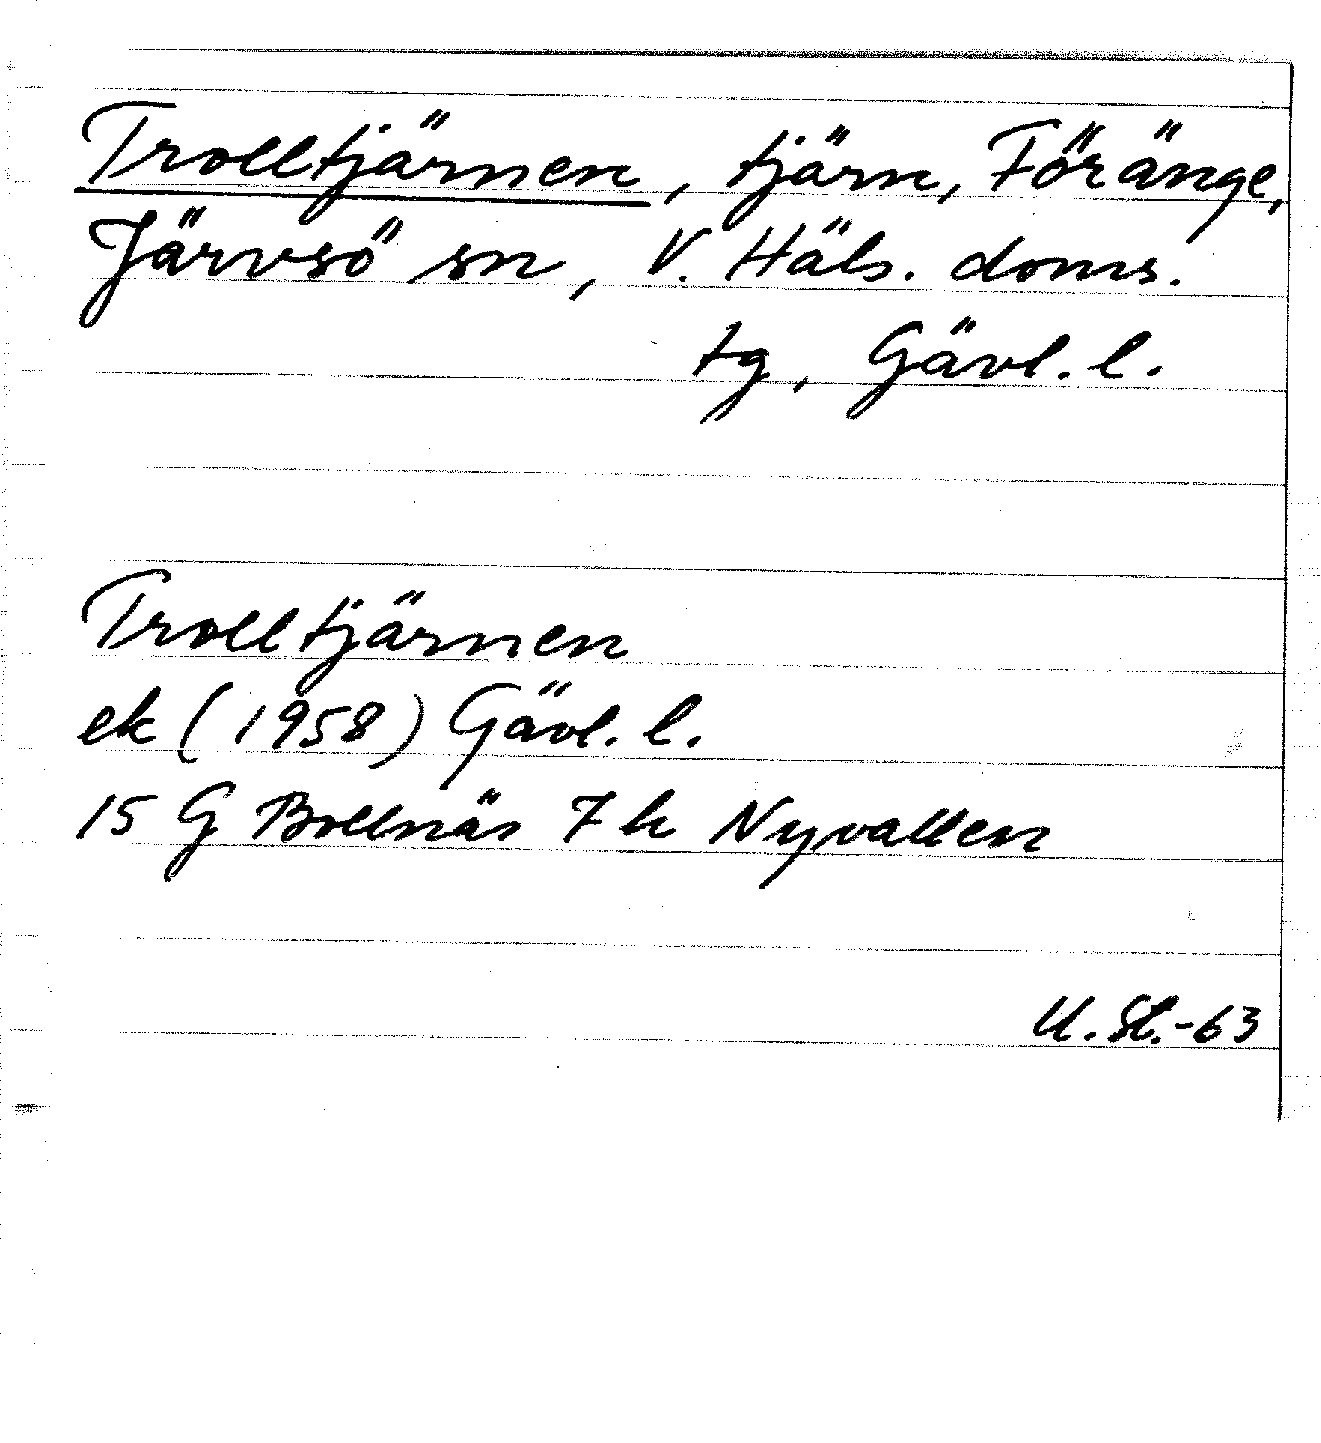 Trolltjärnen, tjärn, Föränge,
Järvsö sn, V. Häls. doms.
tg, Gävl. l.
Trolltjärnen
ek (1958) Gävl. l.
15 G Bollnäs 7 h Nyvallen
U. St.-63